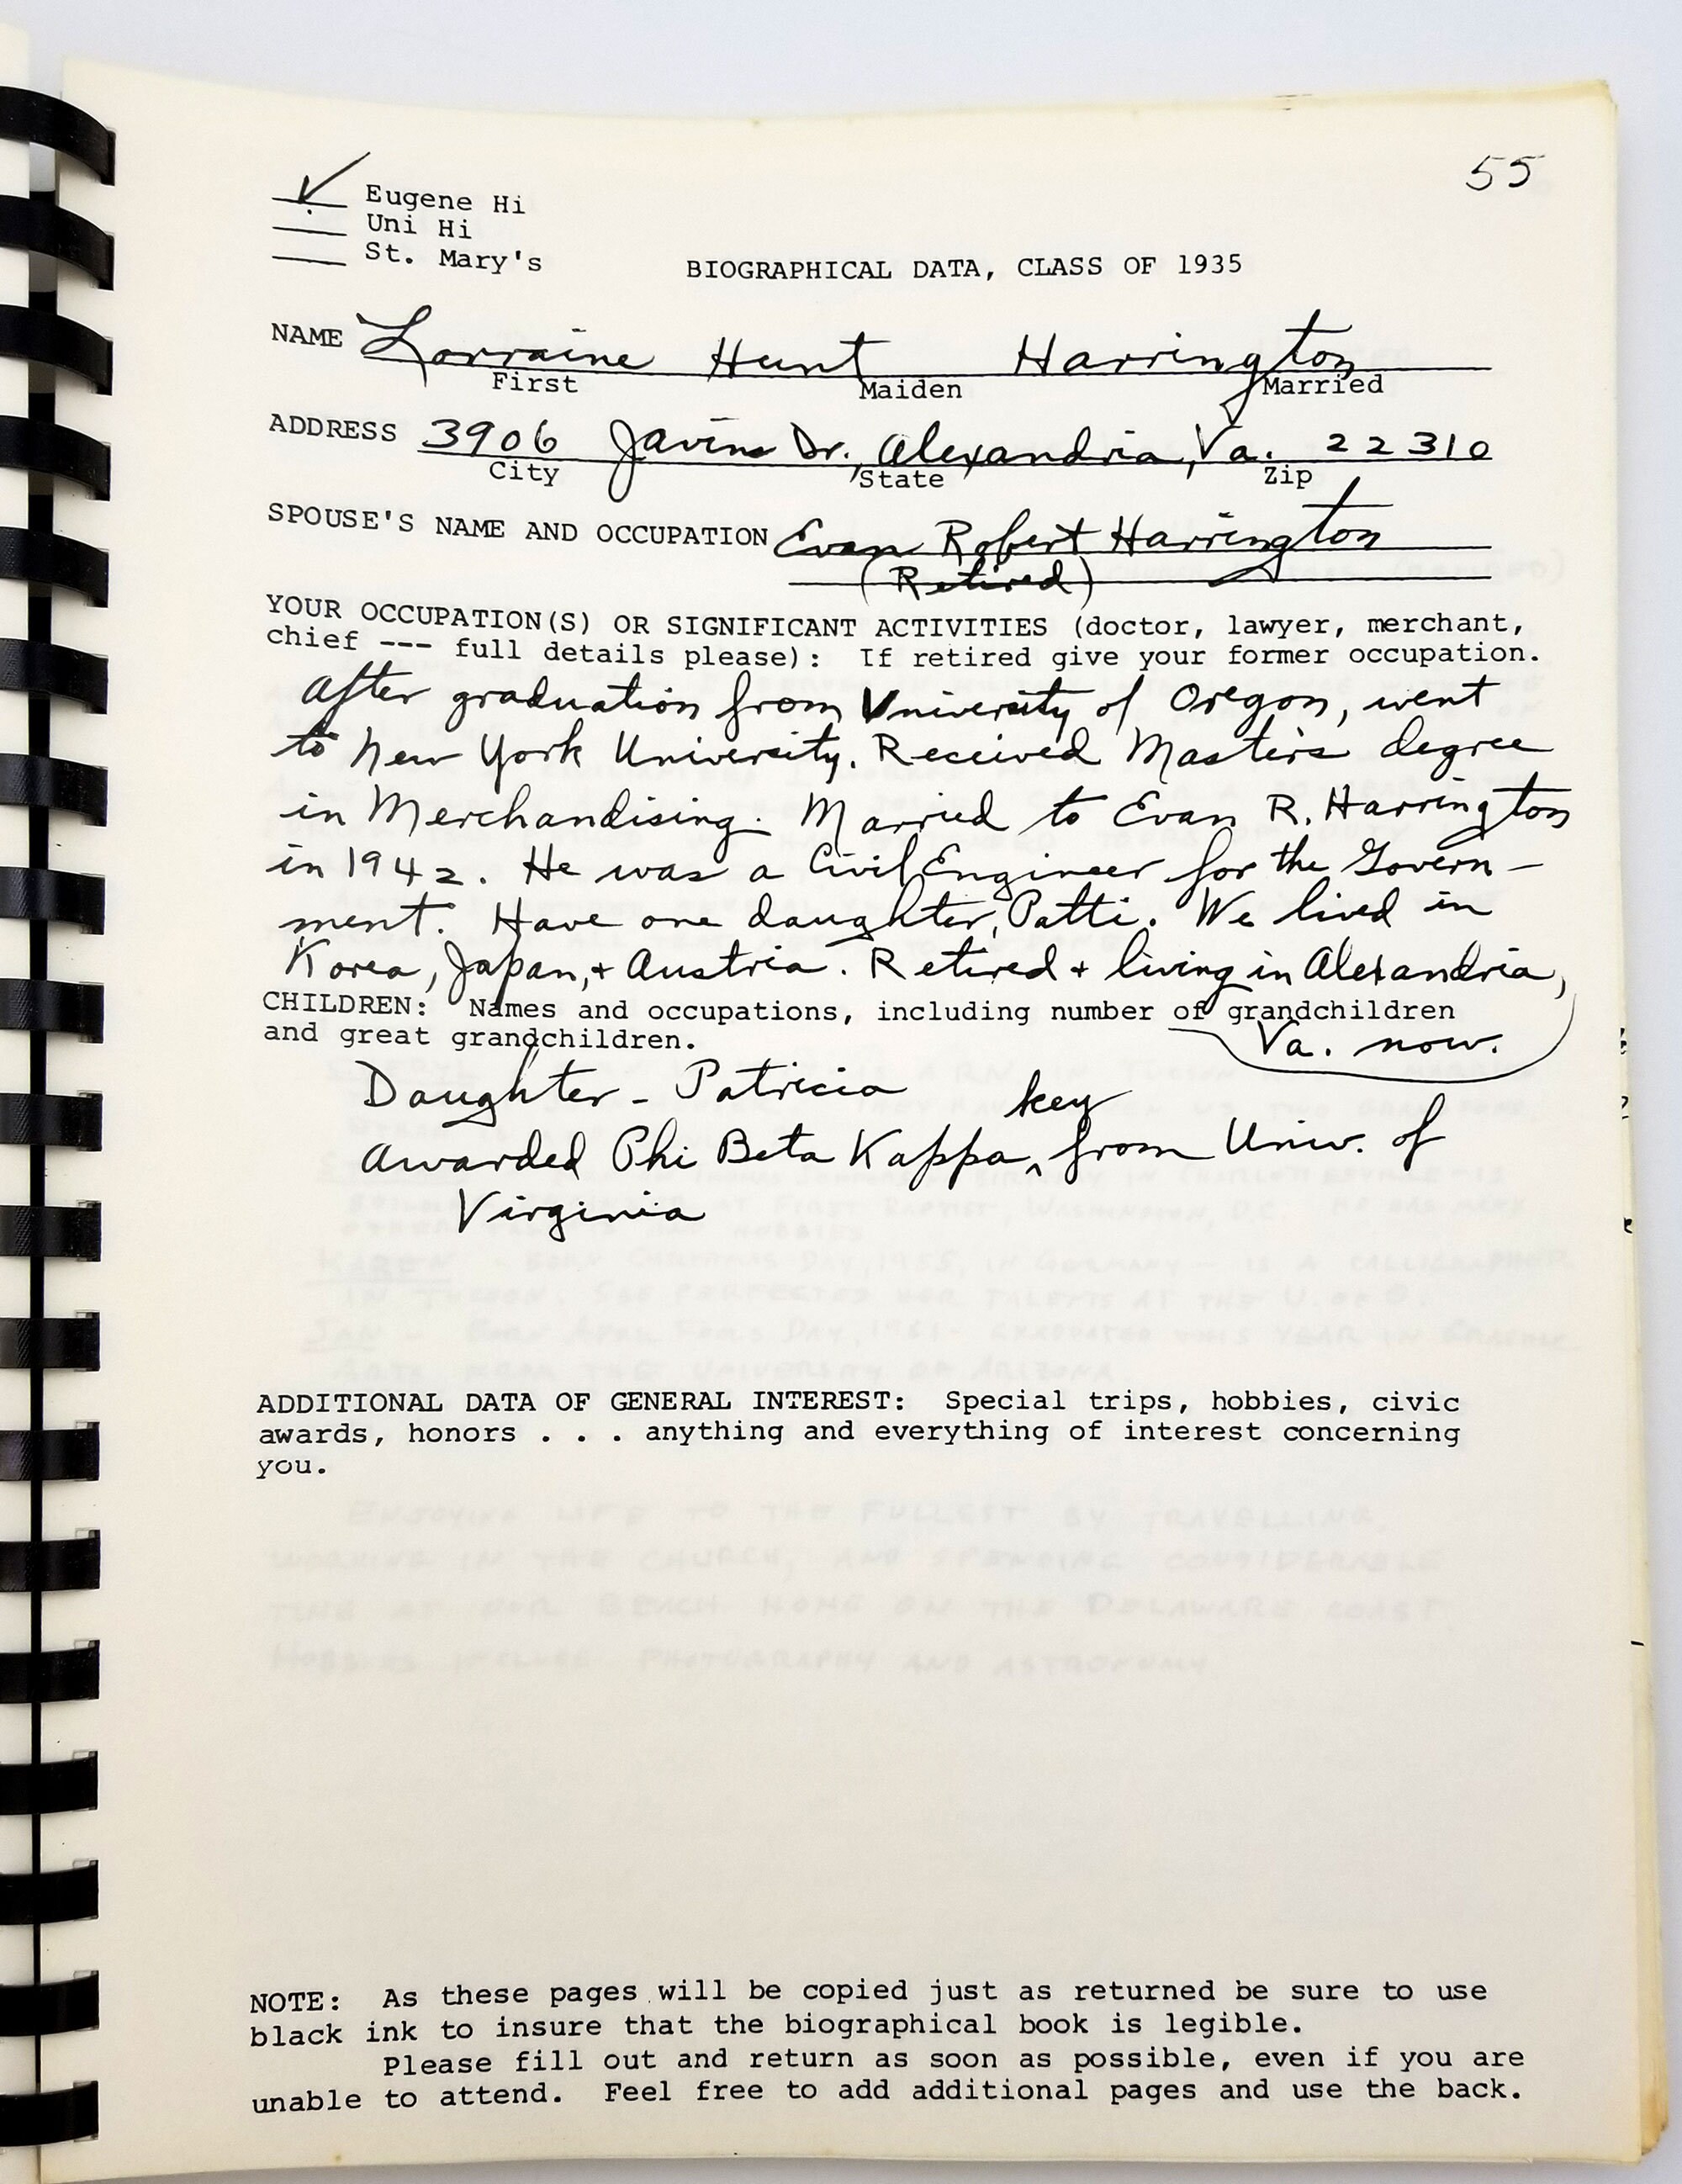 55
✓ Eugene Hi
Uni Hi
St. Mary's
BIOGRAPHICAL DATA, CLASS OF 1935
NAME Lorraine Hunt Harrington
First Maiden Married
ADDRESS 3906 Javins Dr., Alexandria, Va. 22310
City State Zip
SPOUSE'S NAME AND OCCUPATION Evan Robert Harrington
(Retired)
YOUR OCCUPATION(S) OR SIGNIFICANT ACTIVITIES (doctor, lawyer, merchant,
chief --- full details please): If retired give your former occupation.
After graduation from University of Oregon, went
to New York University. Received Master's degree
in Merchandising. Married to Evan R. Harrington
in 1942. He was a Civil Engineer for the Govern-
ment. Have one daughter, Patti. We lived in
Korea, Japan, + Austria. Retired + living in Alexandria,
Va. now.
CHILDREN: Names and occupations, including number of grandchildren
and great grandchildren.
Daughter - Patricia
key
Awarded Phi Beta Kappa ^ from Univ. of
Virginia
ADDITIONAL DATA OF GENERAL INTEREST: Special trips, hobbies, civic
awards, honors . . . anything and everything of interest concerning
you.
ENJOYING LIFE TO THE FULLEST BY TRAVELLING,
WORKING IN THE CHURCH, AND SPENDING CONSIDERABLE
TIME AT OUR BEACH HOME ON THE DELAWARE COAST
HOBBIES INCLUDE PHOTOGRAPHY AND ASTRONOMY
NOTE: As these pages will be copied just as returned be sure to use
black ink to insure that the biographical book is legible.
Please fill out and return as soon as possible, even if you are
unable to attend. Feel free to add additional pages and use the back.